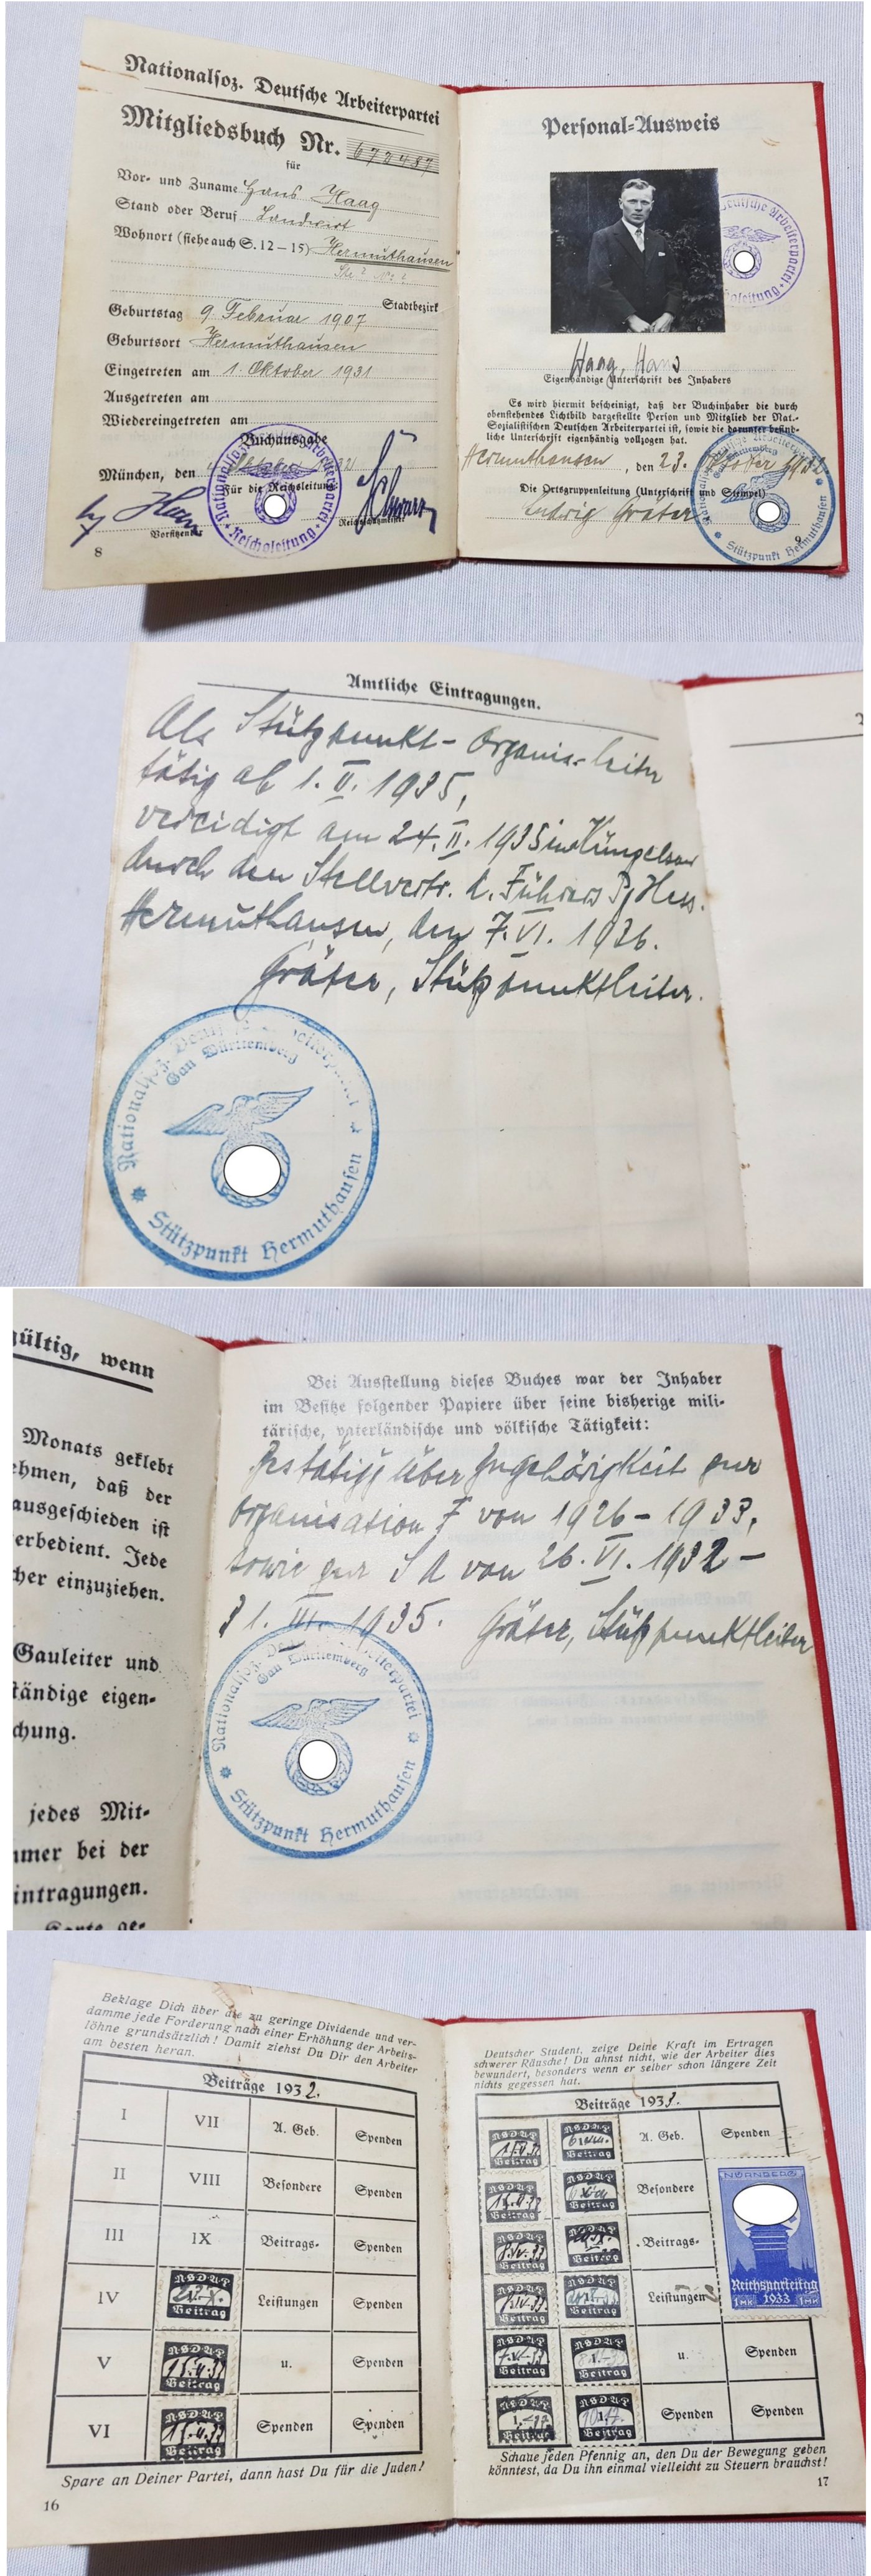 Nationalsoz. Deutsche Arbeiterpartei
Mitgliedsbuch Nr.
für
Vor- und Zuname Hans Haag
Stand oder Beruf Landwirt
Wohnort (siehe auch S. 12–15) Hermuthausen
Stadtbezirk
Geburtstag 9. Februar 1907
Geburtsort Hermuthausen
Eingetreten am 1. Oktober 1931
Ausgetreten am
Wiedereingetreten am
Buchausgabe
München, den
Für die Reichsleitung
Reichsleitung
Vorsitzender
Reichsschatzmeister
8
Personal=Ausweis
Deutsche Arbeiterpartei
Haag, Hans
Eigenhändige Unterschrift des Inhabers
Es wird hiermit bescheinigt, daß der Buchinhaber die durch
obenstehendes Lichtbild dargestellte Person und Mitglied der Nat.-
Sozialistischen Deutschen Arbeiterpartei ist, sowie die darunter befind-
liche Unterschrift eigenhändig vollzogen hat.
Hermuthausen, den 23. Oktober 1932
Die Ortsgruppenleitung (Unterschrift und Stempel)
Ludwig Gräter
Stützpunkt Hermuthausen
9
Amtliche Eintragungen.
Als Stützpunkt-Organis.-leiter
tätig ab 1. II. 1935,
vereidigt am 24. II. 1935 in Künzelsau
durch den Stellvertr. d. Führers Pg Hess.
Hermuthausen, den 7. VI. 1936.
Gräter, Stützpunktleiter.
Nationalsoz. Deutsche Arbeiterpartei
Gau Württemberg
Stützpunkt Hermuthausen
gültig, wenn
Monats geklebt
ehmen, daß der
ausgeschieden ist
erbedient. Jede
cher einzuziehen.
Gauleiter und
tändige eigen-
chung.
jedes Mit-
mmer bei der
intragungen.
Bei Ausstellung dieses Buches war der Inhaber
im Besitze folgender Papiere über seine bisherige mili-
tärische, vaterländische und völkische Tätigkeit:
Bestätigg über Zugehörigkeit zur
Organisation F von 1926–1933,
sowie zur SA von 26. VI. 1932 –
31. III. 1935. Gräter, Stützpunktleiter
Nationalsoz. Deutsche Arbeiterpartei
Gau Württemberg
Stützpunkt Hermuthausen
Beklage Dich über die zu geringe Dividende und ver-
damme jede Forderung nach einer Erhöhung der Arbeits-
löhne grundsätzlich! Damit ziehst Du Dir den Arbeiter
am besten heran.
Beiträge 1932.
I VII A. Geb. Spenden
II VIII Besondere Spenden
III IX Beitrags- Spenden
IV NSDAP Beitrag Leistungen Spenden
V NSDAP Beitrag u. Spenden
VI NSDAP Beitrag Spenden Spenden
Spare an Deiner Partei, dann hast Du für die Juden!
16
Deutscher Student, zeige Deine Kraft im Ertragen
schwerer Räusche! Du ahnst nicht, wie der Arbeiter dies
bewundert, besonders wenn er selber schon längere Zeit
nichts gegessen hat.
Beiträge 1933.
NSDAP Beitrag NSDAP Beitrag A. Geb. Spenden
NSDAP Beitrag NSDAP Beitrag Besondere
NSDAP Beitrag NSDAP Beitrag Beitrags-
NSDAP Beitrag NSDAP Beitrag Leistungen
NSDAP Beitrag NSDAP Beitrag u. Spenden
NSDAP Beitrag NSDAP Beitrag Spenden Spenden
NÜRNBERG
Reichsparteitag
1MK 1933 1MK
Schaue jeden Pfennig an, den Du der Bewegung geben
könntest, da Du ihn einmal vielleicht zu Steuern brauchst!
17